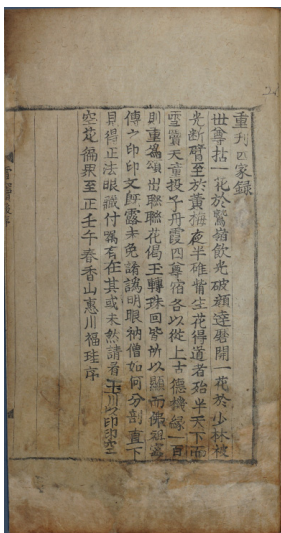 重刊四家録
世尊拈一花於鷲嶺飲光破顔達磨開一花於少林被
光断臂至於黄梅夜半碓觜生花得道者殆半天下而
雪竇天童投子丹霞四尊宿各以從上古德機縁一百
則重為頌出聯聯花偈玉轉珠回皆所以顯而佛祖密
傳之印印文既露未免請譌明眼衲僧如何分剖直下
見得正法眼藏付嘱有在其或未然請看玉川以印印空
空花徧界至正壬午春香山惠川福珪序